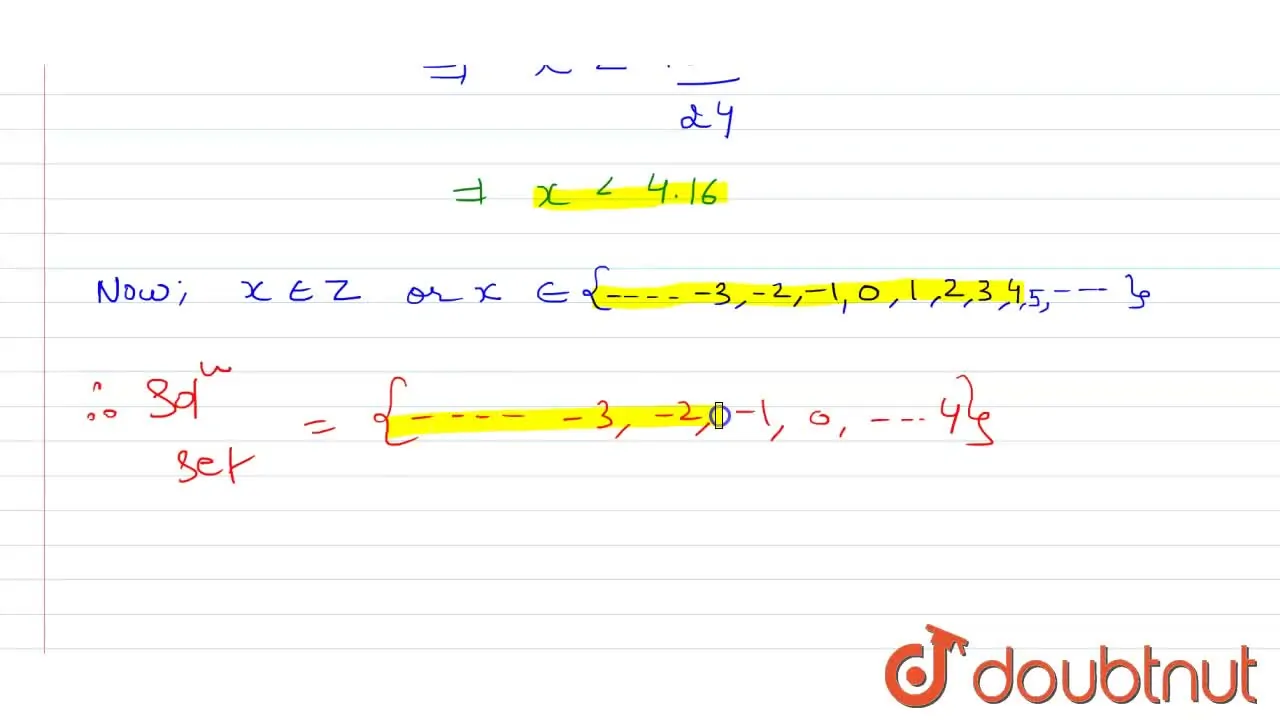 ⇒ x <
24
⇒ x < 4.16
Now; x ∈ Z or x ∈ {---- -3, -2, -1, 0, 1, 2, 3, 4, 5, ---}
∴ Solⁿ set = {---- -3, -2, -1, 0, --- 4}
doubtnut